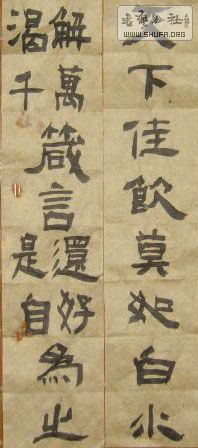 天下佳飲莫如白水
解渴萬千箴言還是好自為之
公社
WWW.SHUFA.ORG